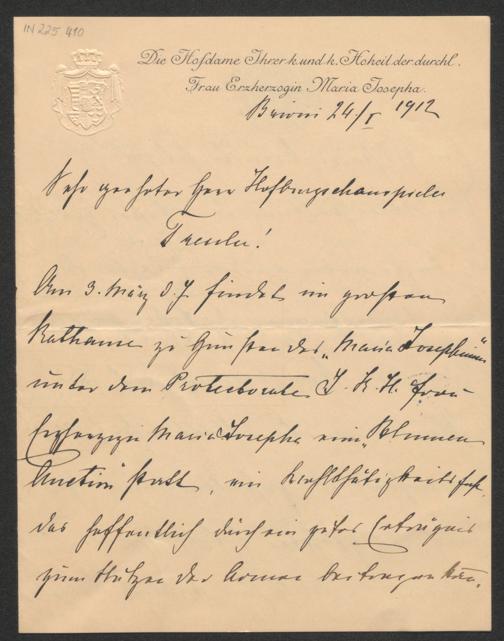 IN 225 410
Die Hofdame Ihrer k. und k. Hoheit der durchl.
Frau Erzherzogin Maria Josepha.
Brioni 24./I 1912
Sehr geehrter Herr Hofburgschauspieler
Tressler!
Am 3. März d. J. findet im grossen
Rathause zu Gunsten des „Maria Josephinum"
unter dem Protectorate I. K. H. Frau
Erzherzogin Maria Josepha eine „Blumen
Auction" statt, ein Wohlthätigkeitsfest,
das hoffentlich durch ein gutes Erträgnis
zum Nutzen der Armen beitragen kann.